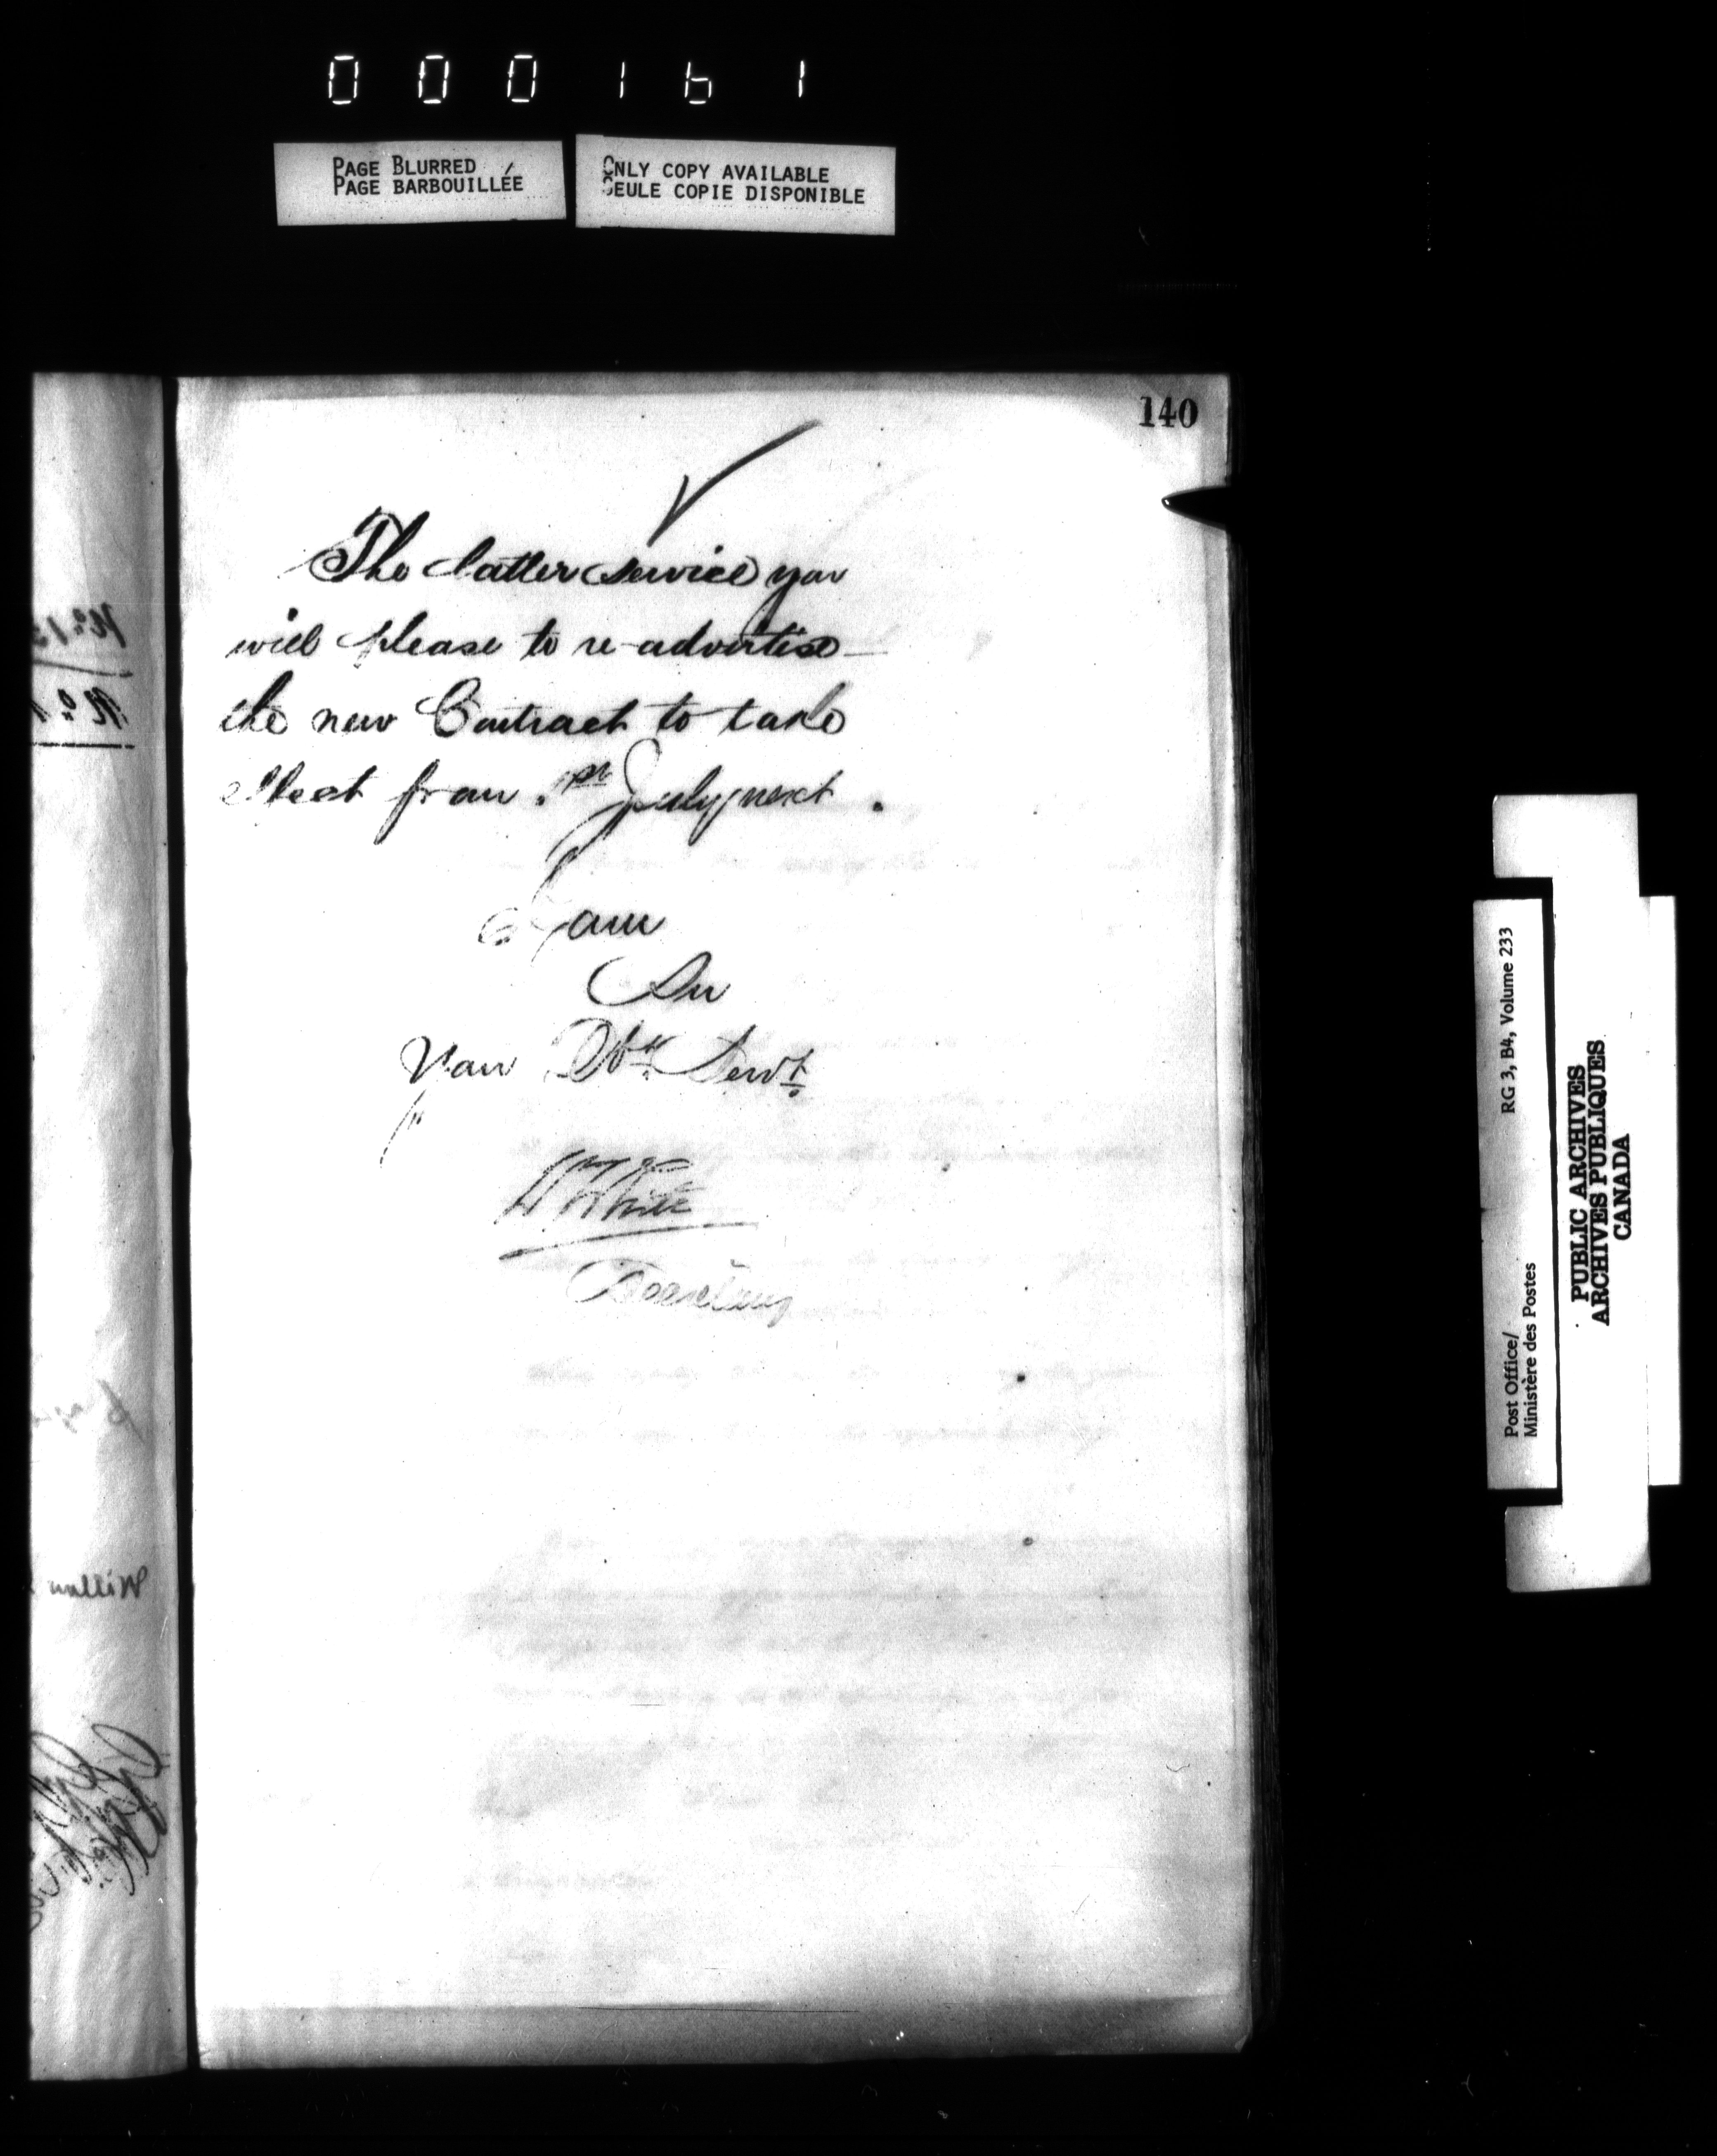 000161
PAGE BLURRED
PAGE BARBOUILLÉE
ONLY COPY AVAILABLE
SEULE COPIE DISPONIBLE
140
The latter service you
will please to re-advertise
the new Contract to take
effect from 1st July next.
I am
Sir
Your Obt. Servt.
W White
Secretary
Post Office/ RG 3, B4, Volume 233
Ministère des Postes
PUBLIC ARCHIVES
ARCHIVES PUBLIQUES
CANADA